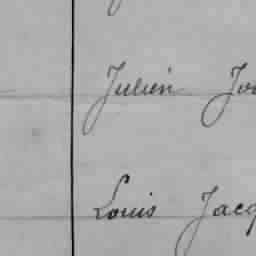 Julien Jo
Louis Jacq